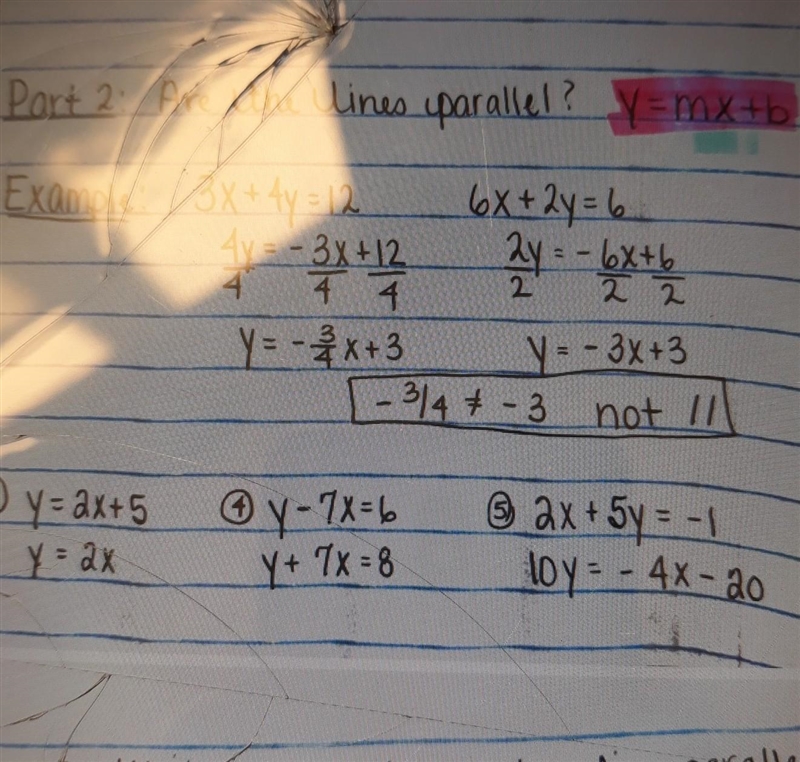 Part 2: Are the lines parallel? y=mx+b
Example: 3x+4y=12 6x+2y=6
4y/4 = -3x/4+12/4 2y/2 = -6x/2+6/2
y= -3/4x+3 y= -3x+3
-3/4 ≠ -3 not //
) y=2x+5 ④ y-7x=6 ⑤ 2x+5y=-1
y=2x y+7x=8 10y= -4x-20